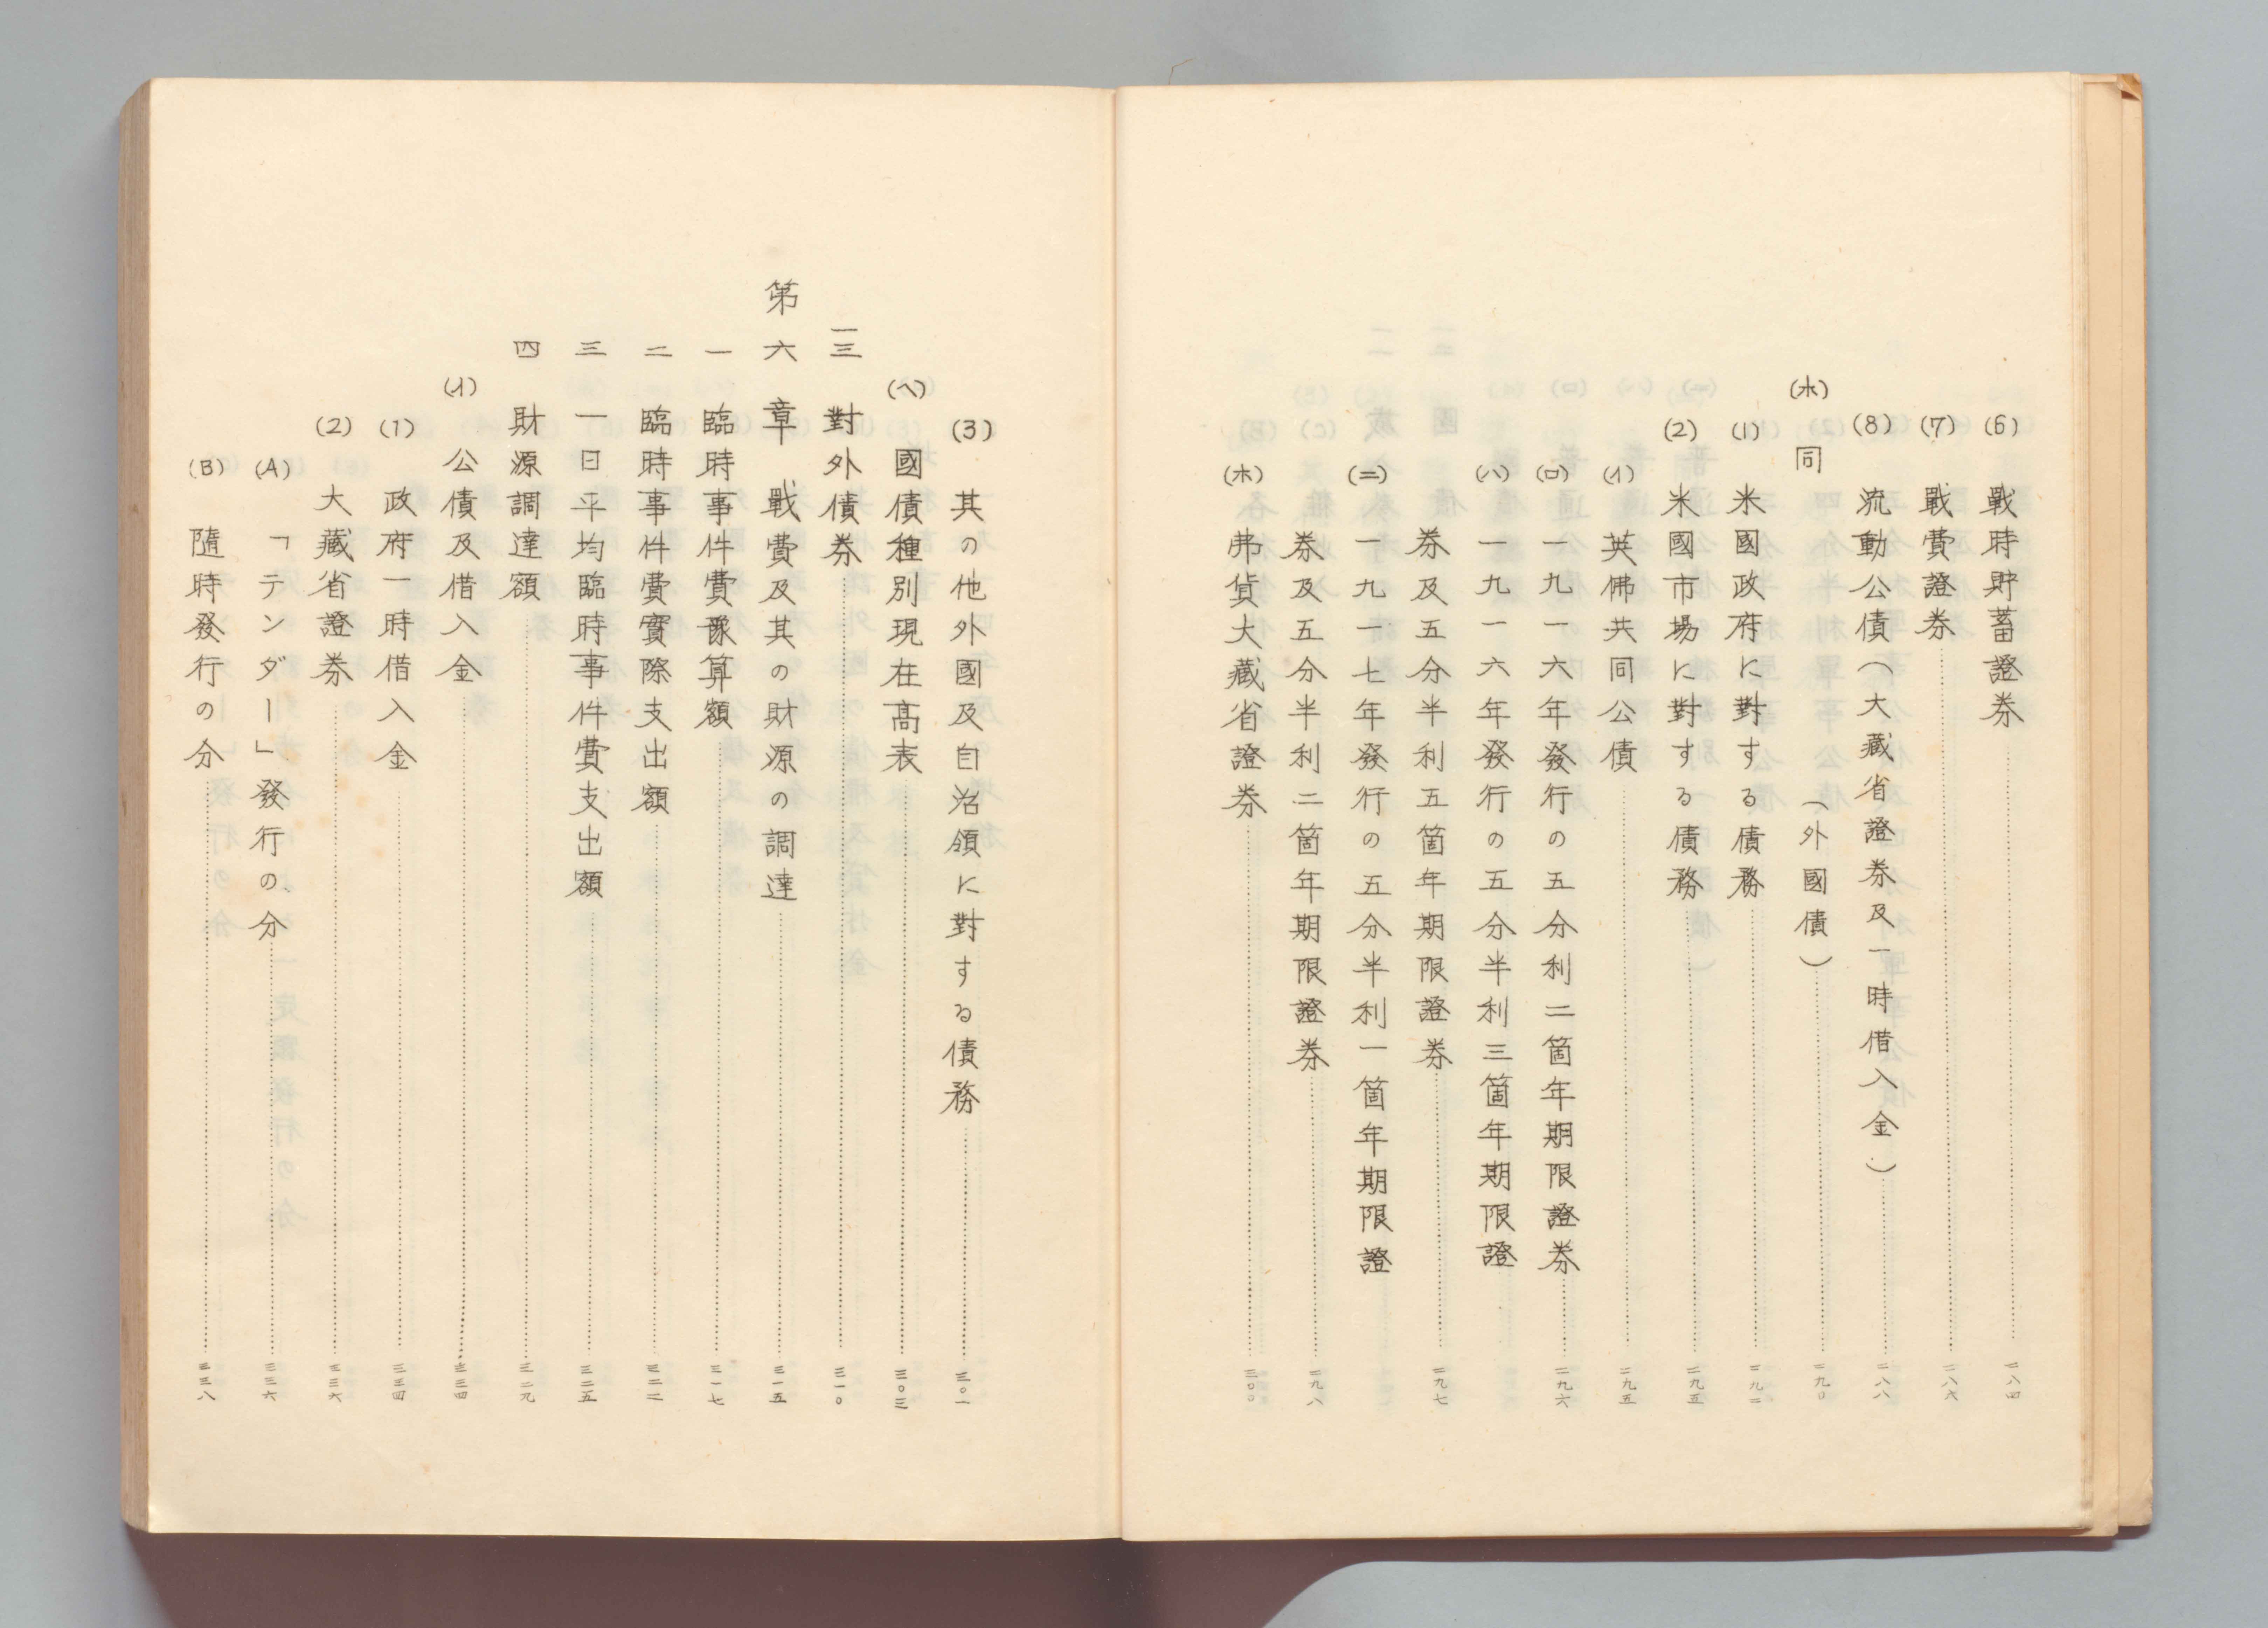 (6) 戰時貯蓄證券 二八四
(7) 戰費證券 二八六
(8) 流動公債(大藏省證券及一時借入金) 二八八
(ホ) 同 (外國債) 二九〇
(1) 米國政府に對する債務 二九二
(2) 米國市場に對する債務 二九五
(イ) 英佛共同公債 二九五
(ロ) 一九一六年發行の五分利二箇年期限證券 二九六
(ハ) 一九一六年發行の五分半利三箇年期限證
券及五分半利五箇年期限證券 二九七
(ニ) 一九一七年發行の五分半利一箇年期限證
券及五分半利二箇年期限證券 二九八
(ホ) 弗貨大藏省證券 三〇〇
(3) 其の他外國及自治領に對する債務 三〇一
(ヘ) 國債種別現在高表 三〇三
三 對外債券 三一〇
第六章 戰費及其の財源の調達 三一五
一 臨時事件費豫算額 三一七
二 臨時事件費實際支出額 三二二
三 一日平均臨時事件費支出額 三二五
四 財源調達額 三二九
(イ) 公債及借入金 三三四
(1) 政府一時借入金 三三四
(2) 大藏省證券 三三六
(A) 「テンダー」發行の分 三三六
(B) 隨時發行の分 三三八